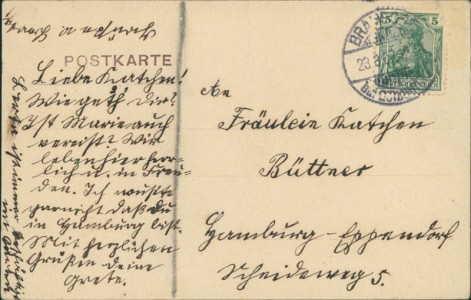 POSTKARTE
Liebe Katchen!
Wie geth Dir?
Ist Marie auch
vereist? Wir
leben hier herr-
lich u. in Freu-
den. Ich wußte
garnicht daß du
in Hamburg bist.
Mit herzlichen
Grüßen deine
Grete.
5
23.8.
An
Fräulein Katchen
Büttner
Hamburg-Eppendorf
Scheideweg 5.